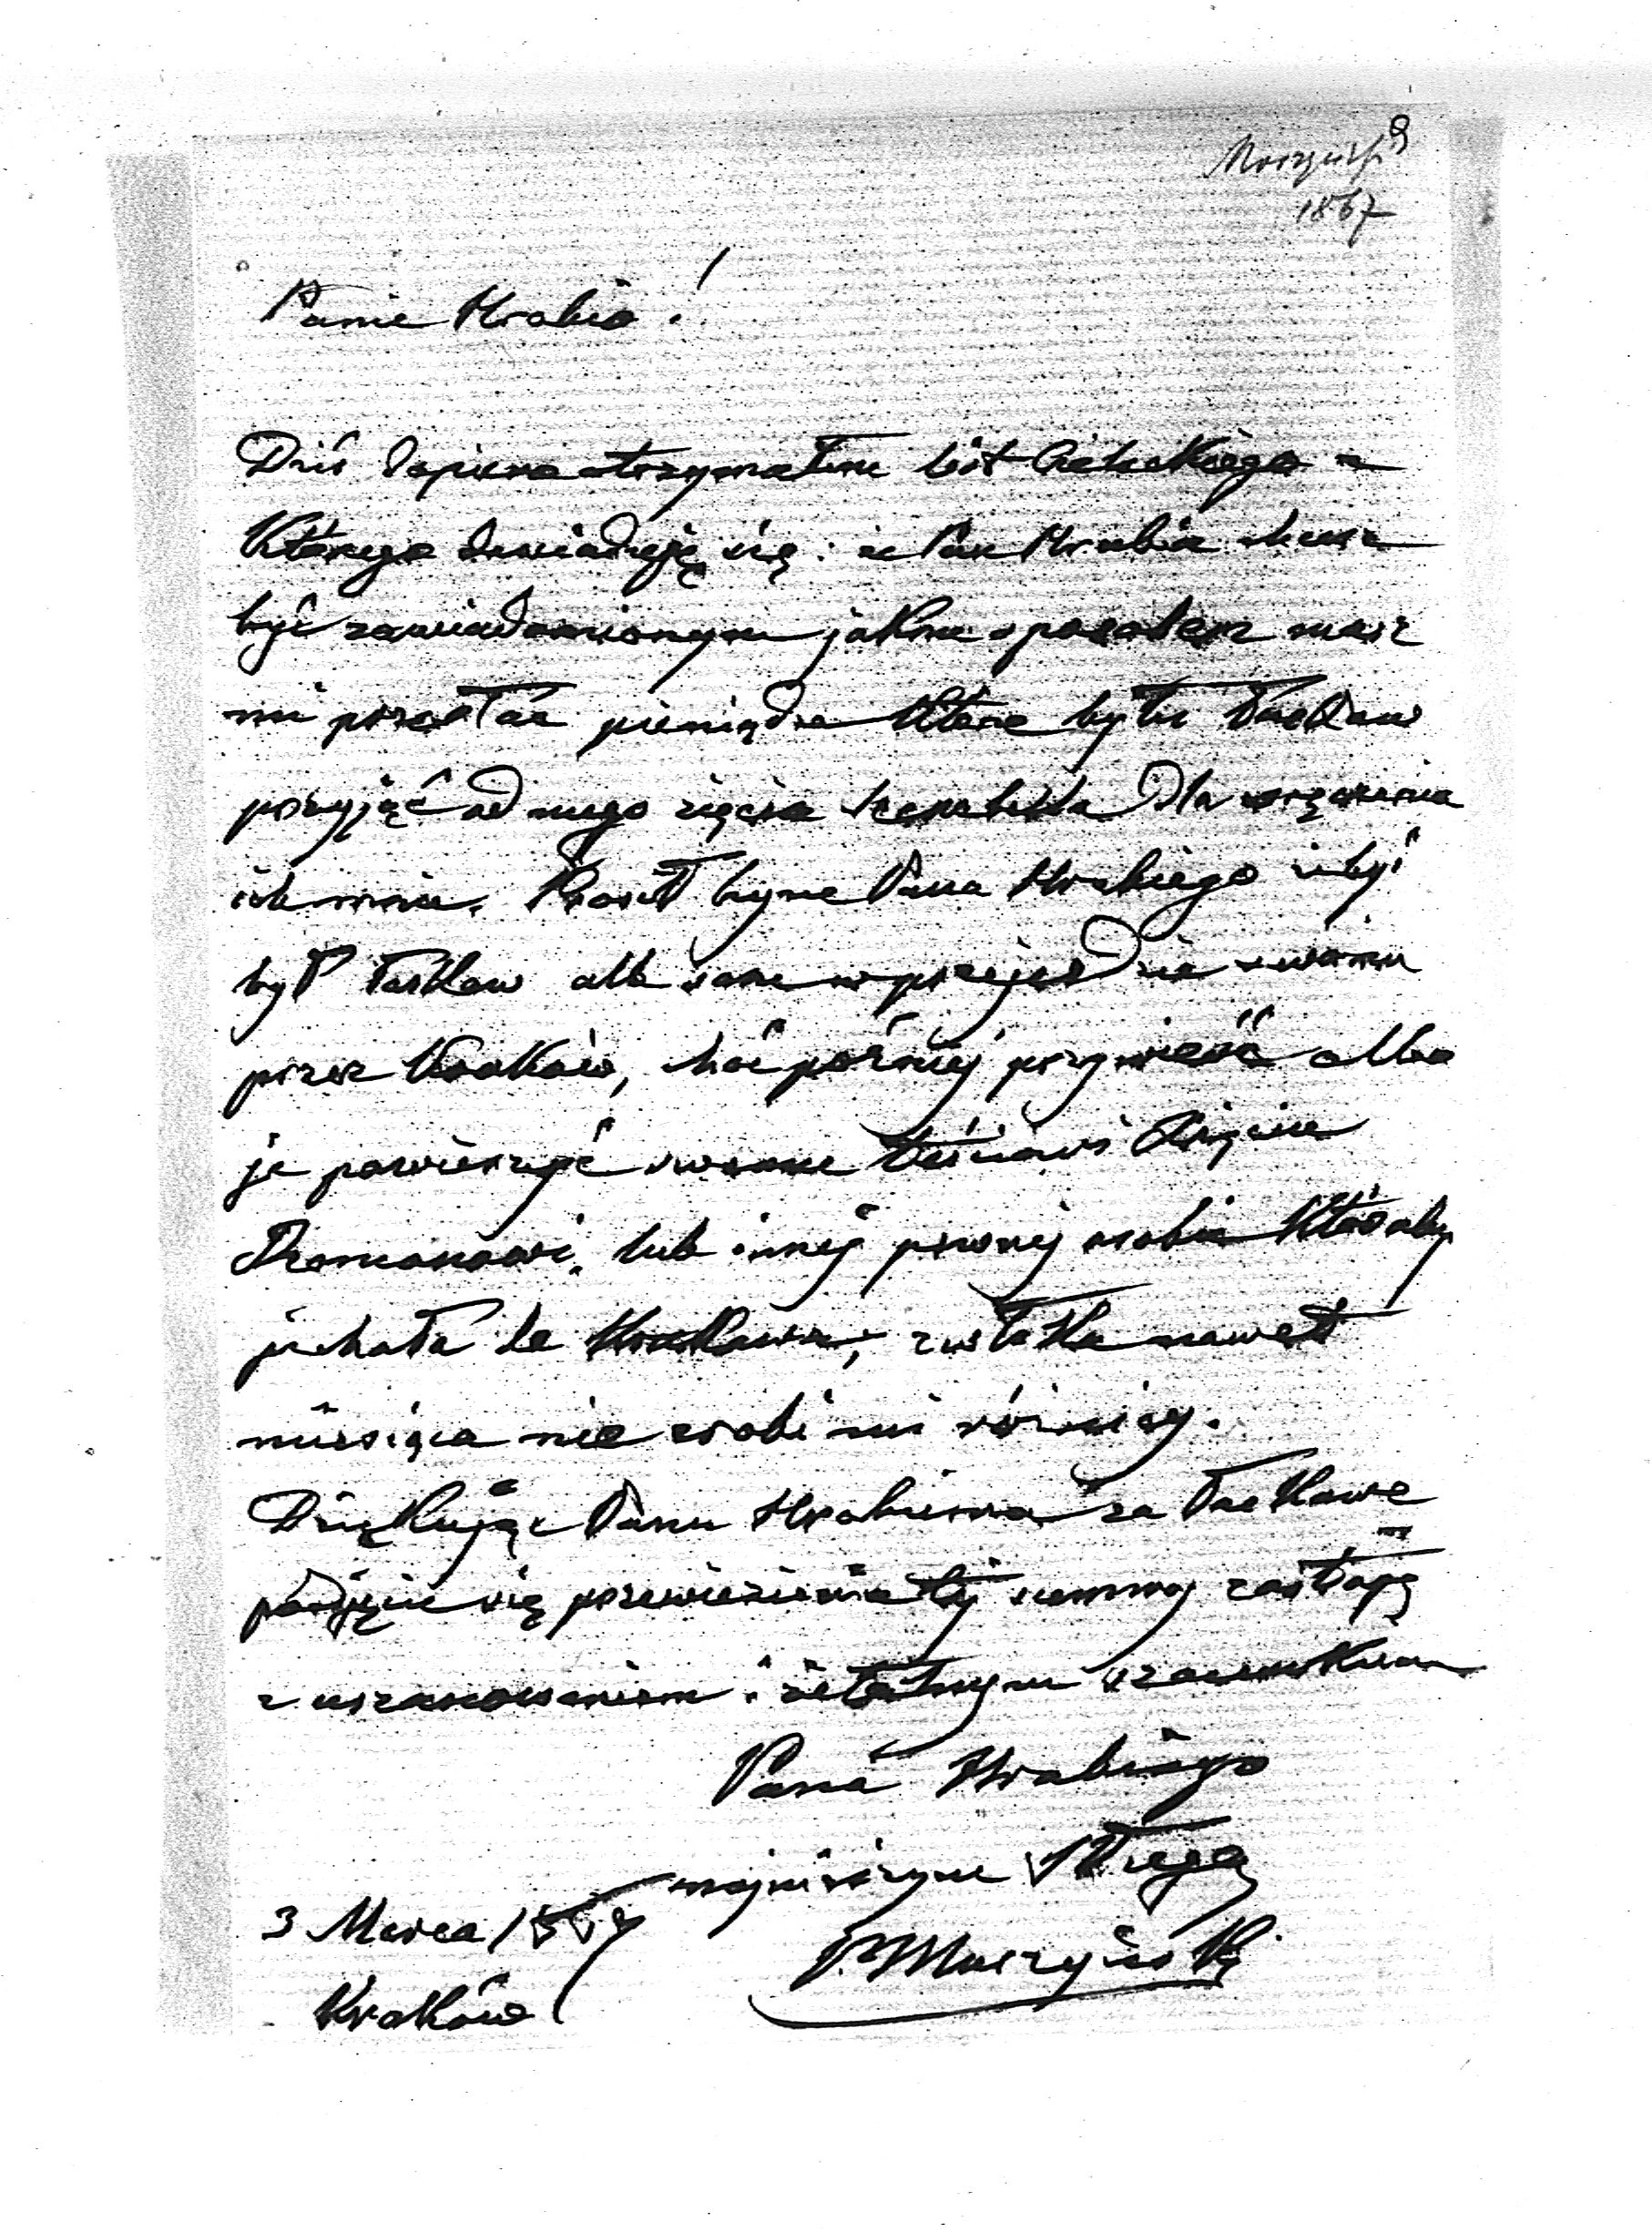 1867
Panie Hrabio!
Dziś dopiero otrzymałem list z
którego dowiaduję się: że Pan Hrabia chce
być zawiadomionym jakim sposobem masz
mi przesłać pieniądze które byłeś łaskaw
przyjąć od mego zięcia dla wręczenia
ich mnie. Prosił bym Pana Hrabiego iżbyś
był łaskaw albo sam w przejeździe swoim
przez Kraków, choć później przywieść albo
je powierzyć swemu teściowi Xięciu
Romanowi, lub innej pewnej osobie któraby
jechała do Krakowa; zwłoka nawet
miesiąca nie zrobi mi różnicy.
Dziękując Panu Hrabiemu za łaskawe
podjęcie się przewiezienia tej summy zostaję
z uszanowaniem i szacunkiem
Pana Hrabiego
najniższym sługą
P. Moszyński
3 Marca 1867
Kraków